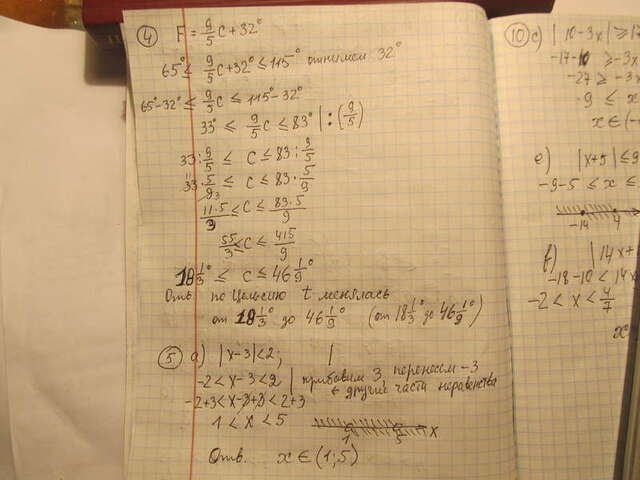 ④ F = 9/5 C + 32°
65° ≤ 9/5 C + 32° ≤ 115° отнимем 32°
65° - 32° ≤ 9/5 C ≤ 115° - 32°
33° ≤ 9/5 C ≤ 83° | : (9/5)
33 : 9/5 ≤ C ≤ 83 : 9/5
33 · 5/9 ≤ C ≤ 83 · 5/9
3
11·5/3 ≤ C ≤ 83·5/9
55/3 ≤ C ≤ 415/9
18 1/3° ≤ C ≤ 46 1/9°
Отв. по Цельсию t менялась
от 18 1/3° до 46 1/9° (от 18 1/3° до 46 1/9°)
⑤ a) |x-3| < 2; |
-2 < x-3 < 2 | прибавим 3, переносим -3
в другие части неравенства
-2+3 < x-3+3 < 2+3
1 < x < 5
1 5 x
Отв. x ∈ (1; 5)
⑩ c) | 10-3x | ≥ 17
-17-10 ≥ -3x
-27 ≥ -3x
9 ≤ x
x ∈ (-
e) |x+5| ≤ 9
-9-5 ≤ x ≤
-14 4
f) |14x+
-18-10 < 14x
-2 < x < 4/7
x